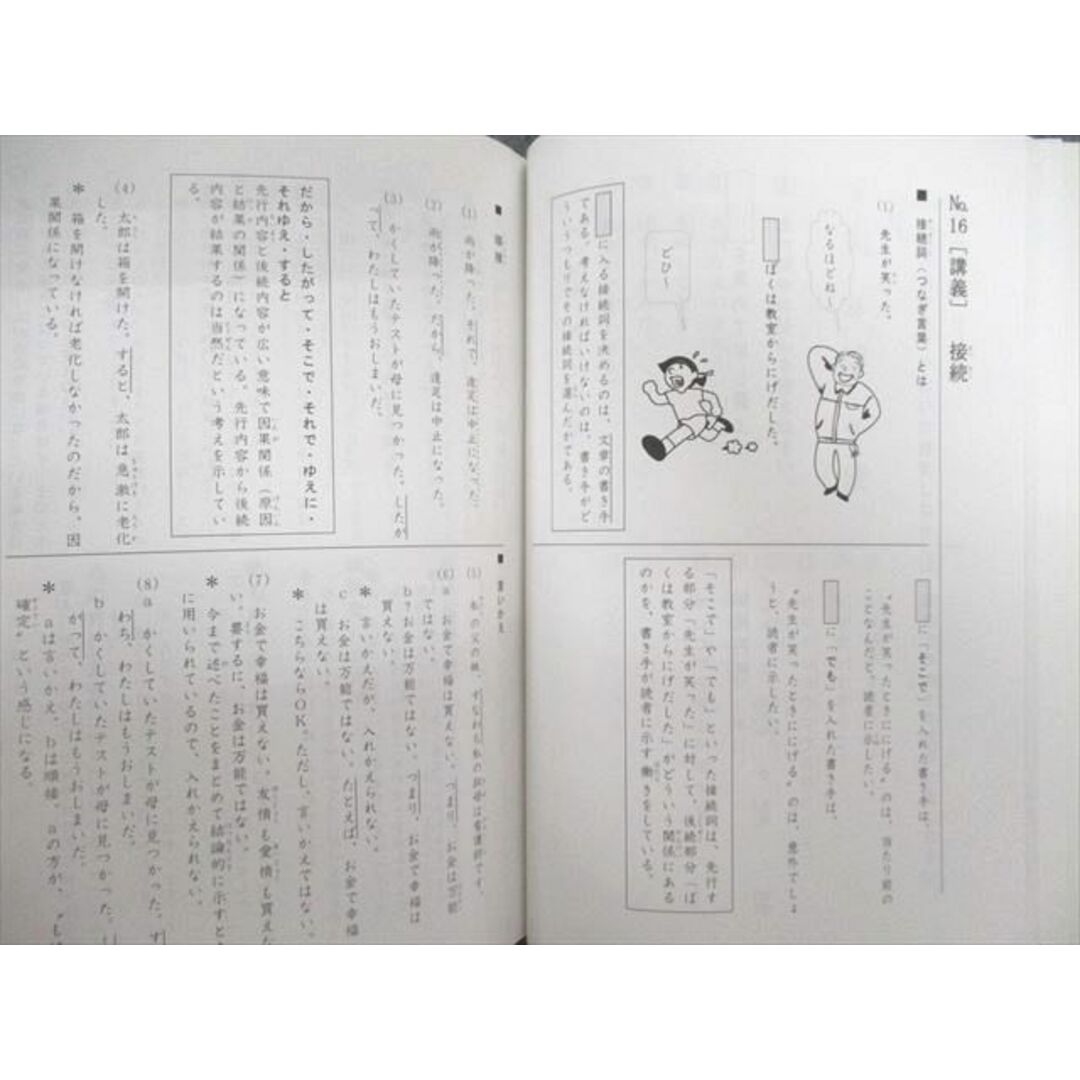 No.16 [講義] 接続
■ 接続詞（つなぎ言葉）とは
(1) 先生が笑った。
なるほどね〜
ぼくは教室からにげだした。
どひ〜
に入る接続詞を決めるのは、文章の書き手
である。考えなければいけないのは、書き手がど
ういうつもりでその接続詞を選んだかである。
に「そこで」を入れた書き手は、
“先生が笑ったときににげる”のは、当たり前の
ことなんだと、読者に示したい。
に「でも」を入れた書き手は、
“先生が笑ったときににげる”のは、意外でしょ
うと、読者に示したい。
「そこで」や「でも」といった接続詞は、先行す
る部分「先生が笑った」に対して、後続部分「ぼ
くは教室からにげだした」がどういう関係にある
のかを、書き手が読者に示す働きをしている。
■ 順接
(1) 雨が降った。それで、遠足は中止になった。
(2) 雨が降った。だから、遠足は中止になった。
(3) かくしていたテストが母に見つかった。したが
って、わたしはもうおしまいだ。
だから・したがって・そこで・それで・ゆえに・
それゆえ・すると
先行内容と後続内容が広い意味で因果関係（原因
と結果の関係）になっている。先行内容から後続
内容が結果するのは当然だという考えを示してい
る。
(4) 太郎は箱を開けた。すると、太郎は急激に老化
した。
＊ 箱を開けなければ老化しなかったのだから、因
果関係になっている。
■ 言いかえ
(5) 私の父の妹、すなわち私の叔母は看護師です。
(6) a お金で幸福は買えない。つまり、お金は万能
ではない。
b？お金は万能ではない。つまり、お金で幸福は
買えない。
＊ 言いかえだが、入れかえられない。
c お金は万能ではない。たとえば、お金で幸福
は買えない。
＊ こちらならOK。ただし、言いかえではない。
(7) お金で幸福は買えない。友情も愛情も買えな
い。要するに、お金は万能ではない。
＊ 今まで述べたことをまとめて結論的に示すと
に用いられているので、入れかえられない。
(8) a かくしていたテストが母に見つかった。す
わち、わたしはもうおしまいだ。
b かくしていたテストが母に見つかった。
がって、わたしはもうおしまいだ。
＊ aは言いかえ、bは順接。aの方が、“も
確定”という感じになる。